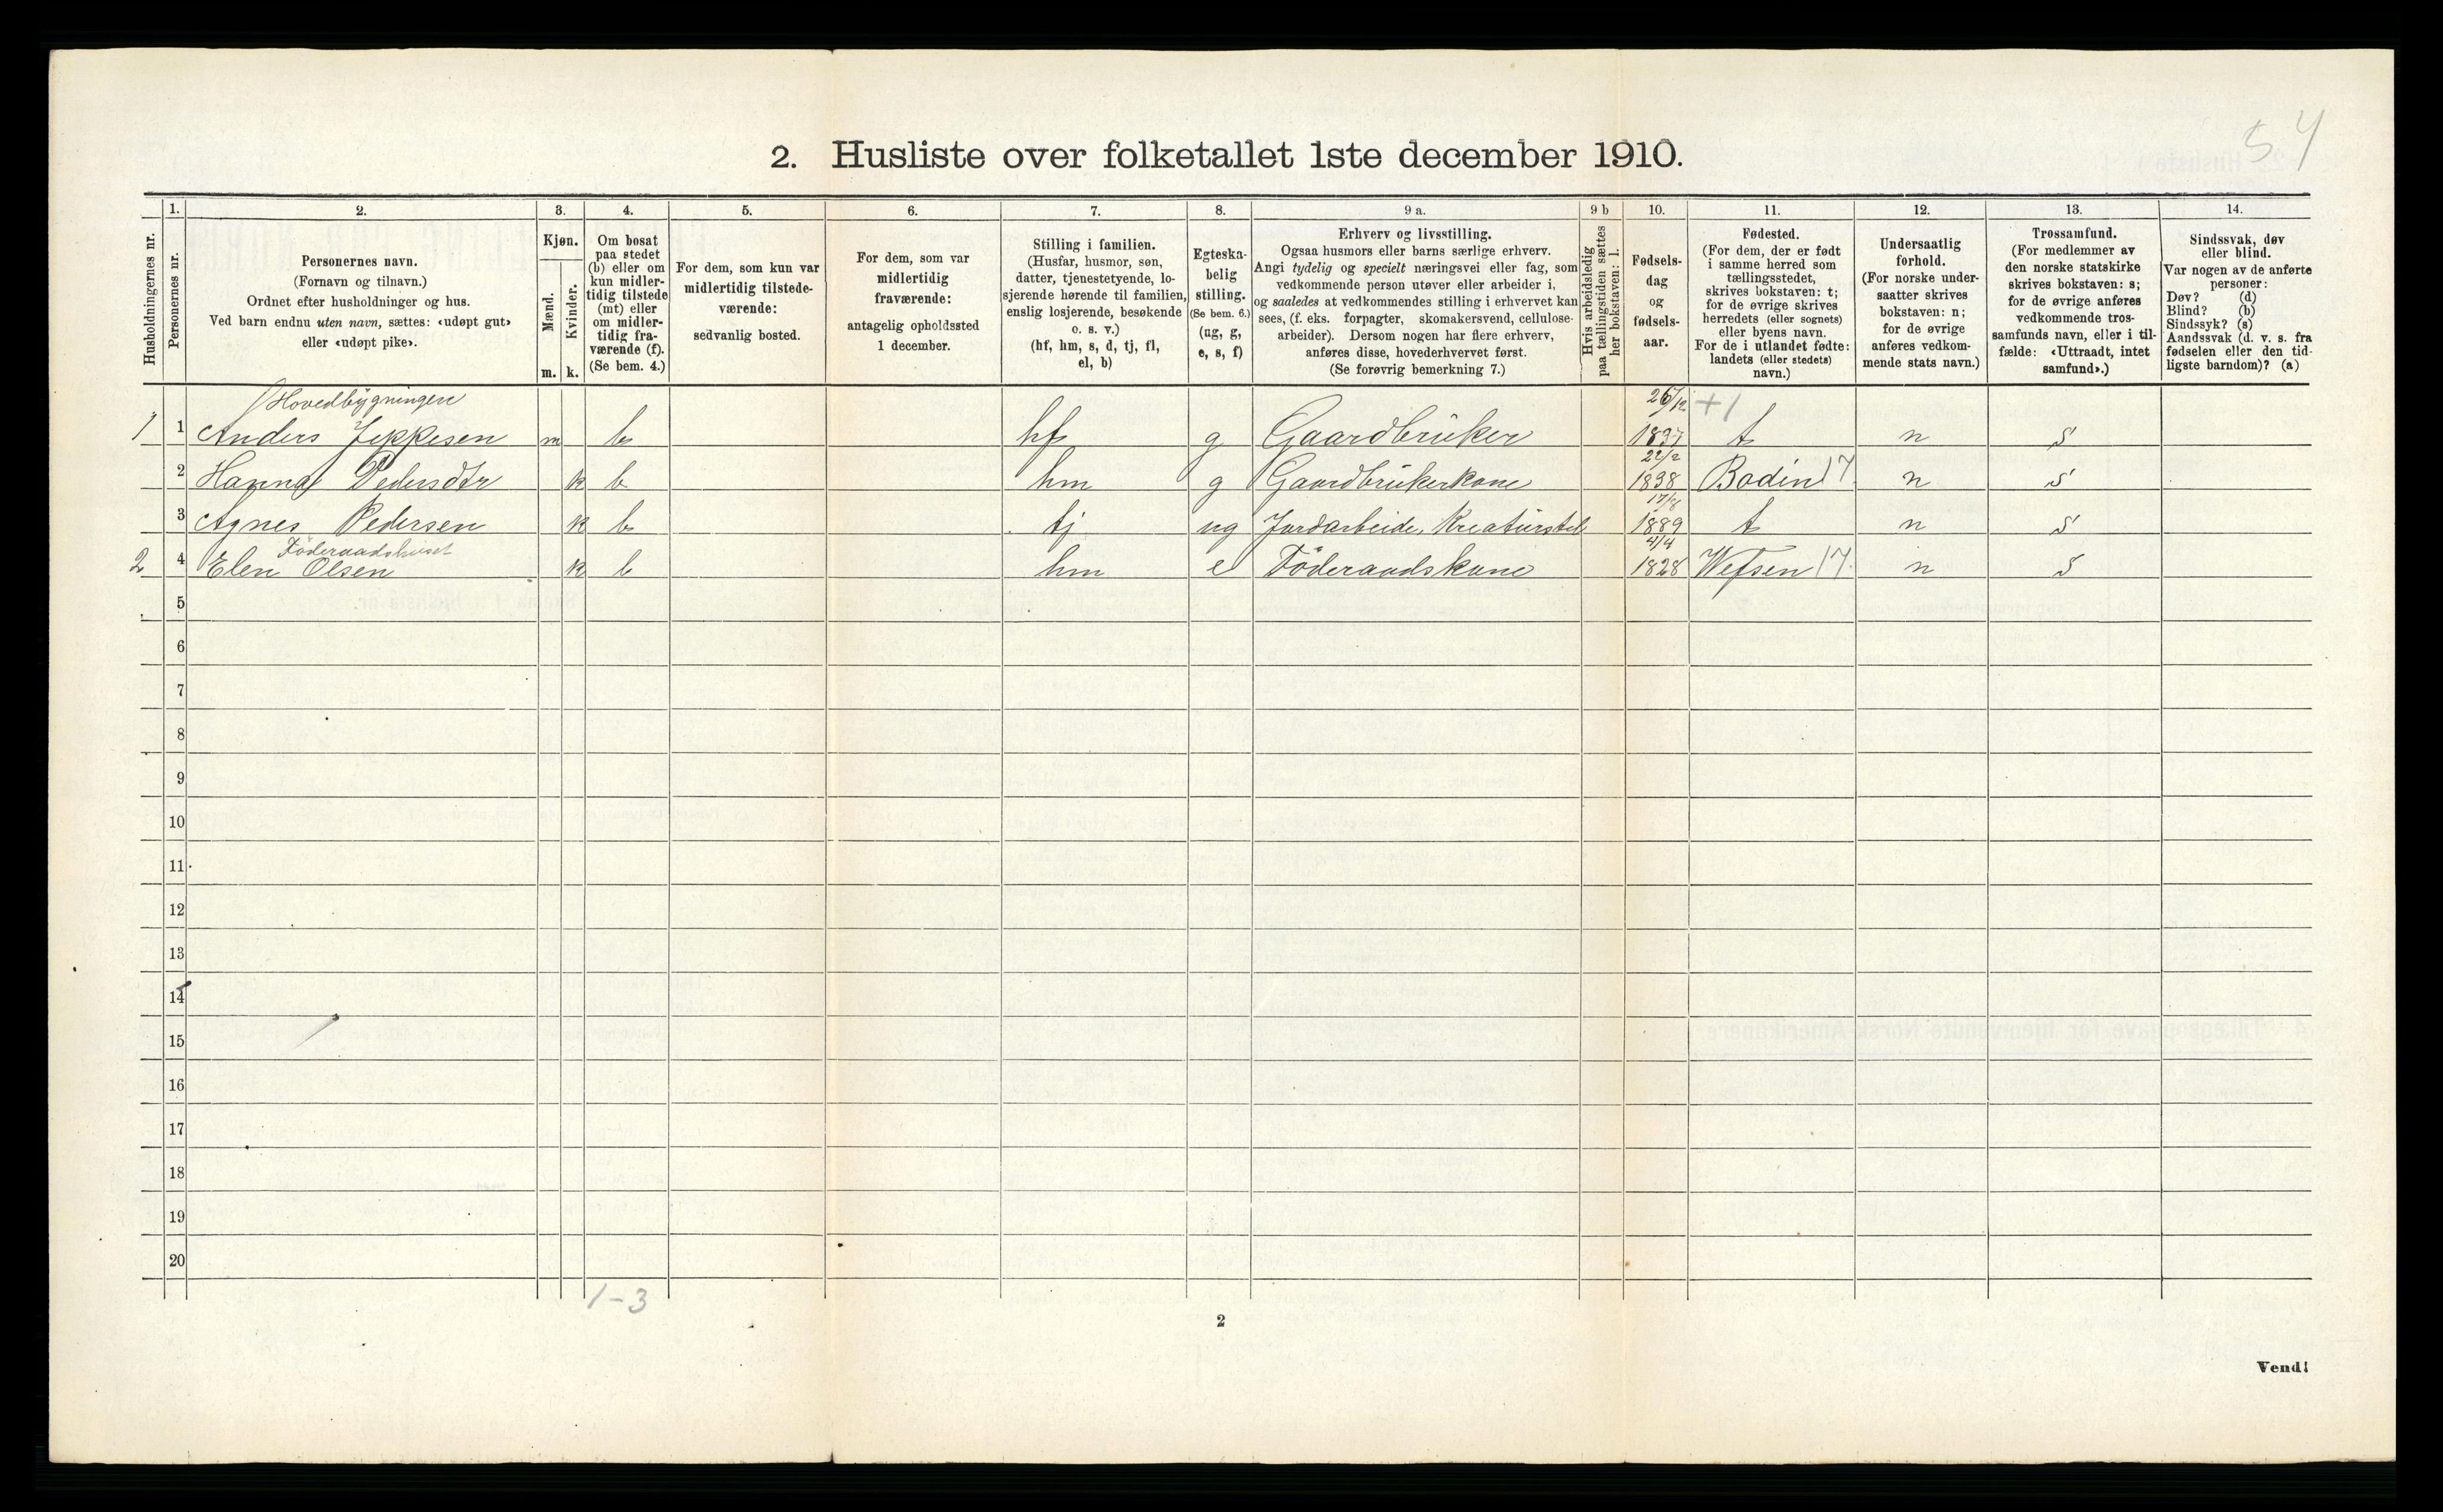 54
2. Husliste over folketallet 1ste december 1910.
Husholdningernes nr.
1. Personernes nr.
2. Personernes navn.
(Fornavn og tilnavn.)
Ordnet efter husholdninger og hus.
Ved barn endnu uten navn, sættes: «udøpt gut»
eller «udøpt pike».
3. Kjøn.
Mænd. m.
Kvinder. k.
4. Om bosat
paa stedet
(b) eller om
kun midler-
tidig tilstede
(mt) eller
om midler-
tidig fra-
værende (f).
(Se bem. 4.)
5. For dem, som kun var
midlertidig tilstede-
værende:
sedvanlig bosted.
6. For dem, som var
midlertidig
fraværende:
antagelig opholdssted
1 december.
7. Stilling i familien.
(Husfar, husmor, søn,
datter, tjenestetyende, lo-
sjerende hørende til familien,
enslig losjerende, besøkende
o. s. v.)
(hf, hm, s, d, tj, fl,
el, b)
8. Egteska-
belig
stilling.
(Se bem. 6.)
(ug, g,
e, s, f)
9 a. Erhverv og livsstilling.
Ogsaa husmors eller barns særlige erhverv.
Angi tydelig og specielt næringsvei eller fag, som
vedkommende person utøver eller arbeider i,
og saaledes at vedkommendes stilling i erhvervet kan
sees, (f. eks. forpagter, skomakersvend, cellulose-
arbeider). Dersom nogen har flere erhverv,
anføres disse, hovederhvervet først.
(Se forøvrig bemerkning 7.)
9 b Hvis arbeidsledig
paa tællingstiden sættes
her bokstaven: l.
10. Fødsels-
dag
og
fødsels-
aar.
11. Fødested.
(For dem, der er født
i samme herred som
tællingsstedet,
skrives bokstaven: t;
for de øvrige skrives
herredets (eller sognets)
eller byens navn.
For de i utlandet fødte:
landets (eller stedets)
navn.)
12. Undersaatlig
forhold.
(For norske under-
saatter skrives
bokstaven: n;
for de øvrige
anføres vedkom-
mende stats navn.)
13. Trossamfund.
(For medlemmer av
den norske statskirke
skrives bokstaven: s;
for de øvrige anføres
vedkommende tros-
samfunds navn, eller i til-
fælde: «Uttraadt, intet
samfund».)
14. Sindssvak, døv
eller blind.
Var nogen av de anførte
personer:
Døv? (d)
Blind? (b)
Sindssyk? (s)
Aandssvak (d. v. s. fra
fødselen eller den tid-
ligste barndom)? (a)
Hovedbygningen 26/12 +1
1 1 Anders Jeppesen m b hf g Gaardbruker 1837 t n s
22/2
2 Hanna Pedersdtr k b hm g Gaardbrukerkone 1838 Bodin 17 n s
17/8
3 Agnes Pedersen k b tj ug Jordarbeide, Kreaturstel 1889 t n s
Föderaadshuset 4/4
2 4 Elen Olsen k b hm e Föderaadskone 1828 Wefsen 17. n s
5
6
7
8
9
10
11
12
13
14
15
16
17
18
19
20
1-3
2
Vend!